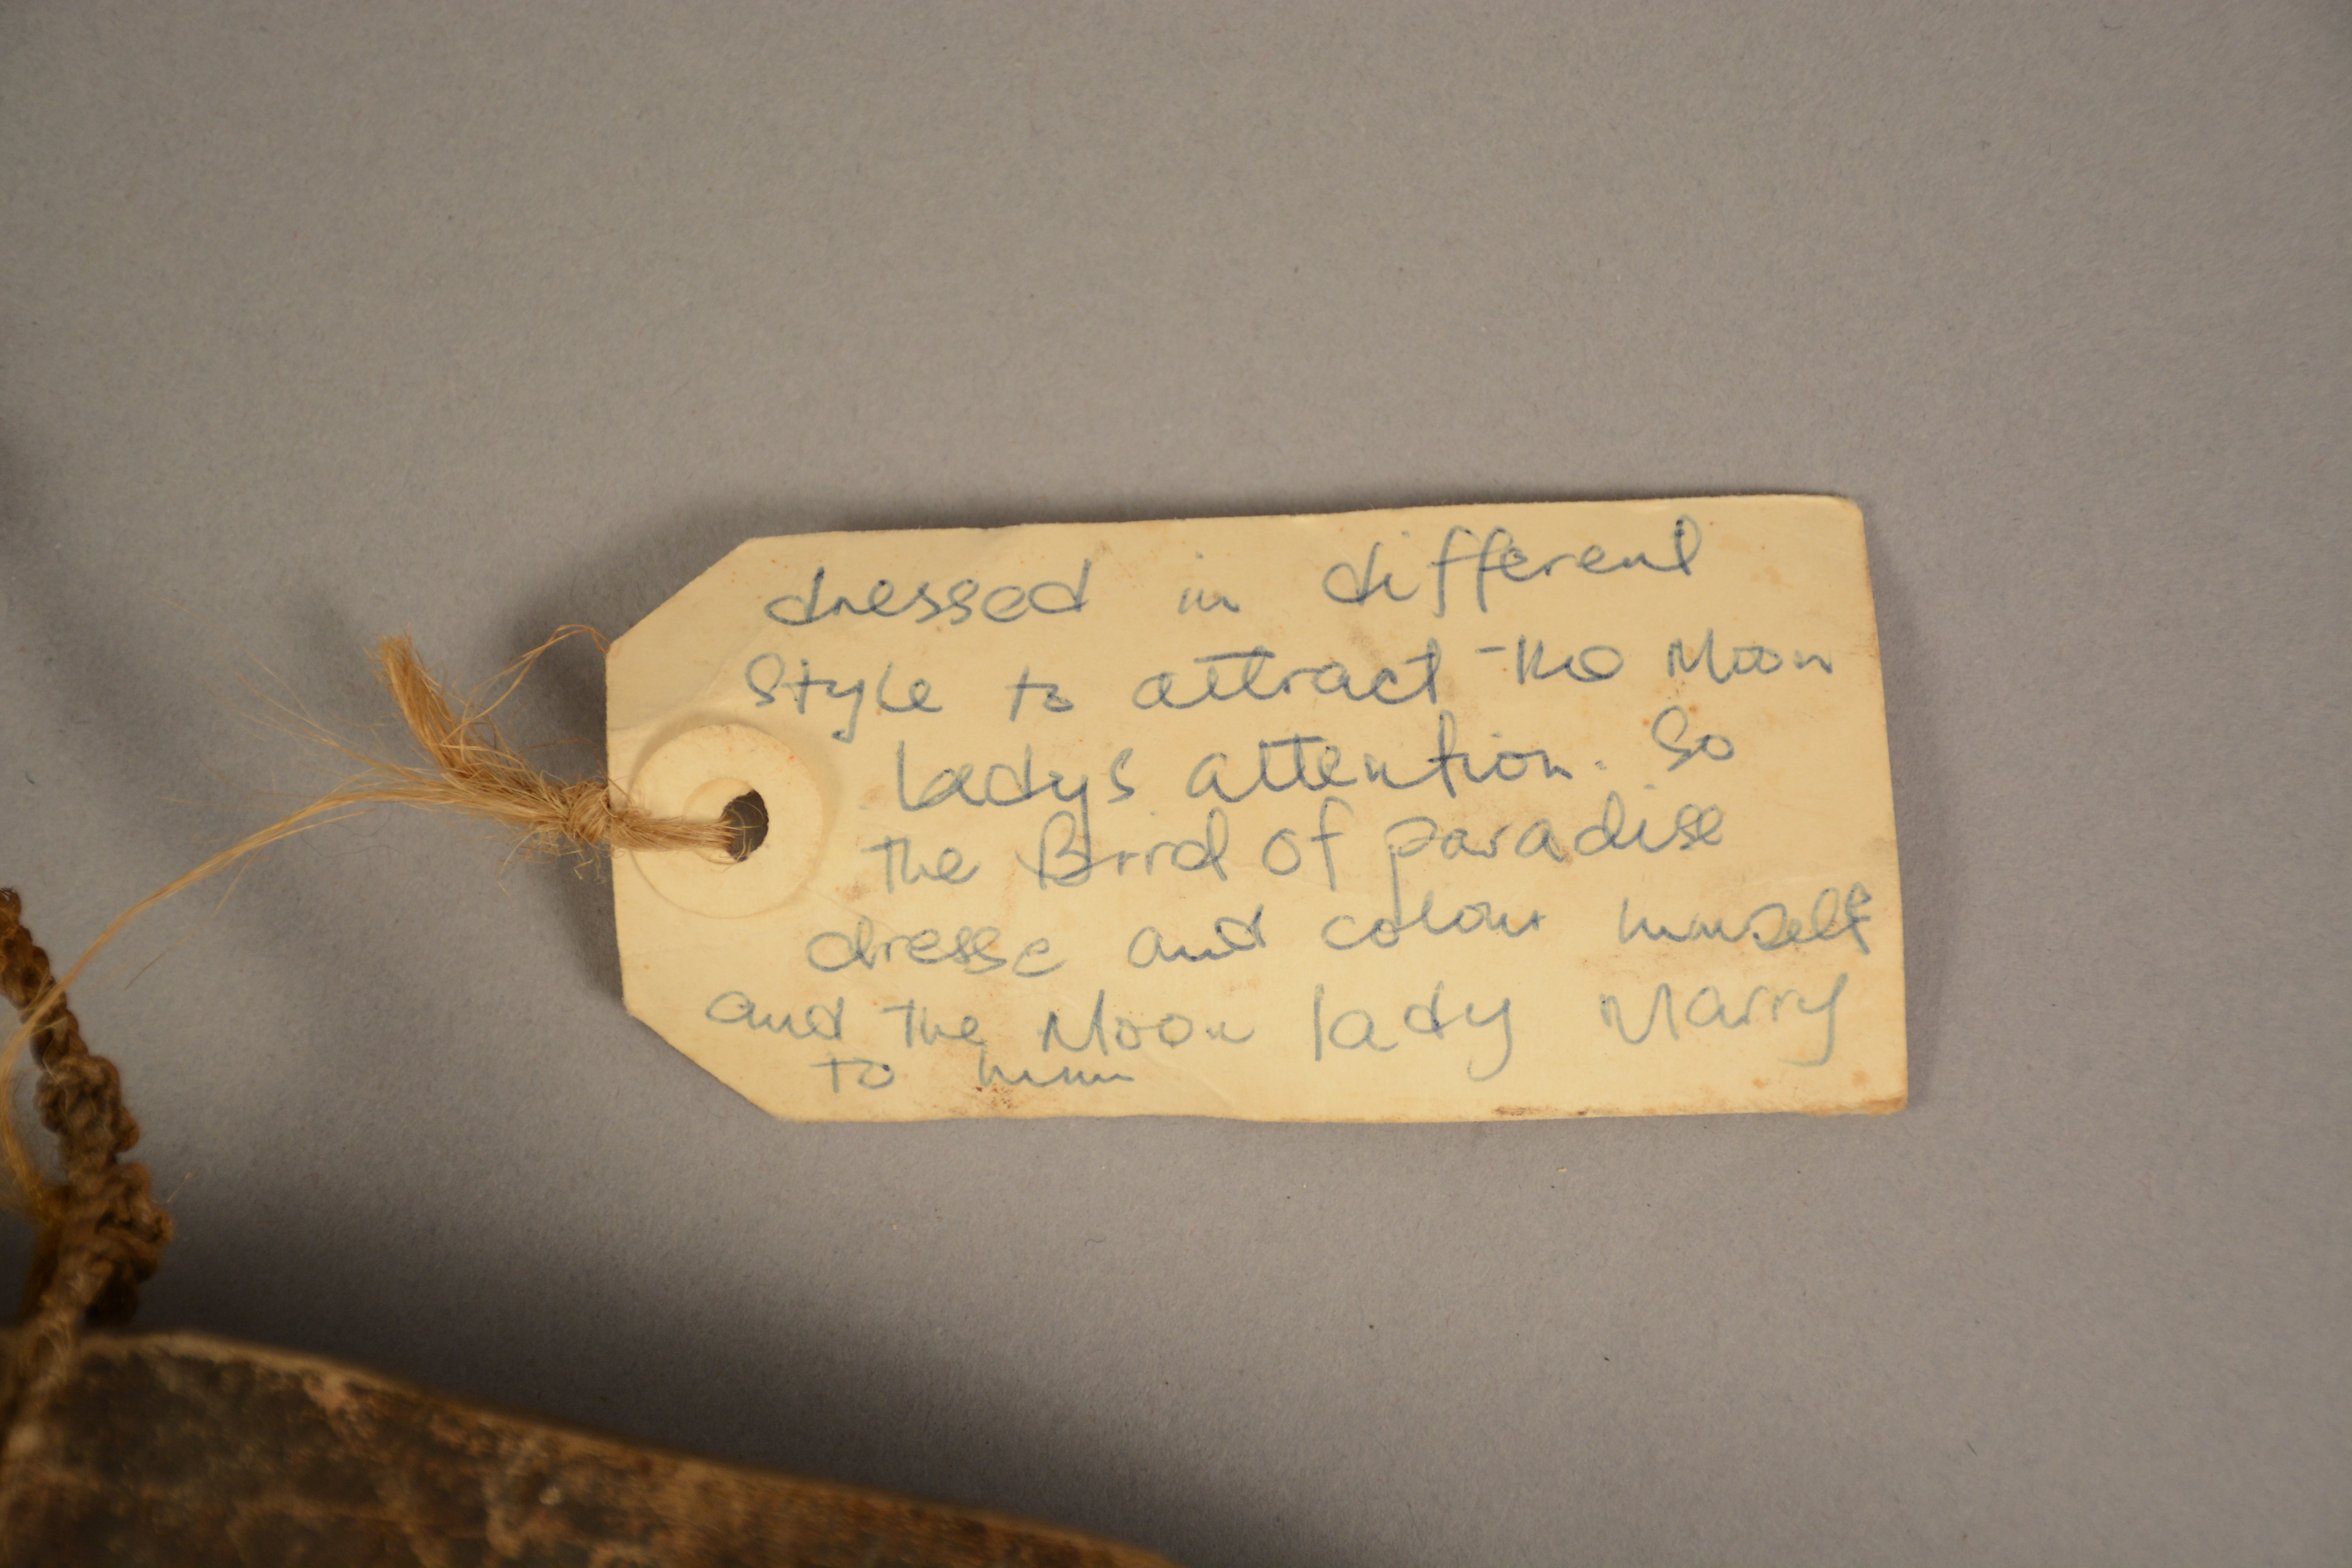 dressed in different
Style to attract the Moon
ladys attention. So
the Bird of paradise
dresse and colour himself
and the Moon lady Marry
to him